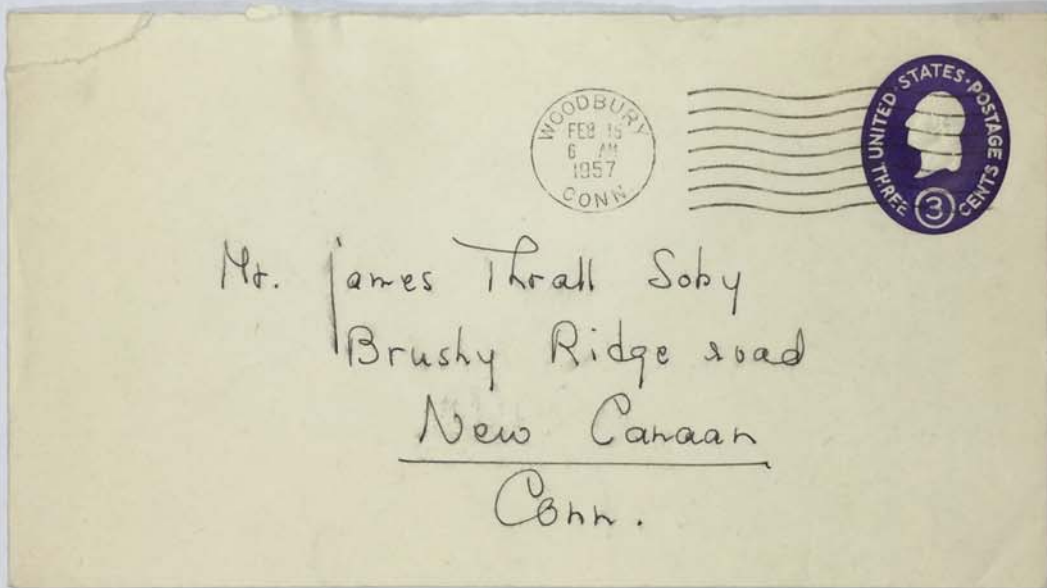 WOODBURY
FEB 15
6 AM
1957
CONN.
UNITED STATES POSTAGE
THREE CENTS
3
Mr. James Thrall Soby
Brushy Ridge road
New Canaan
Conn.